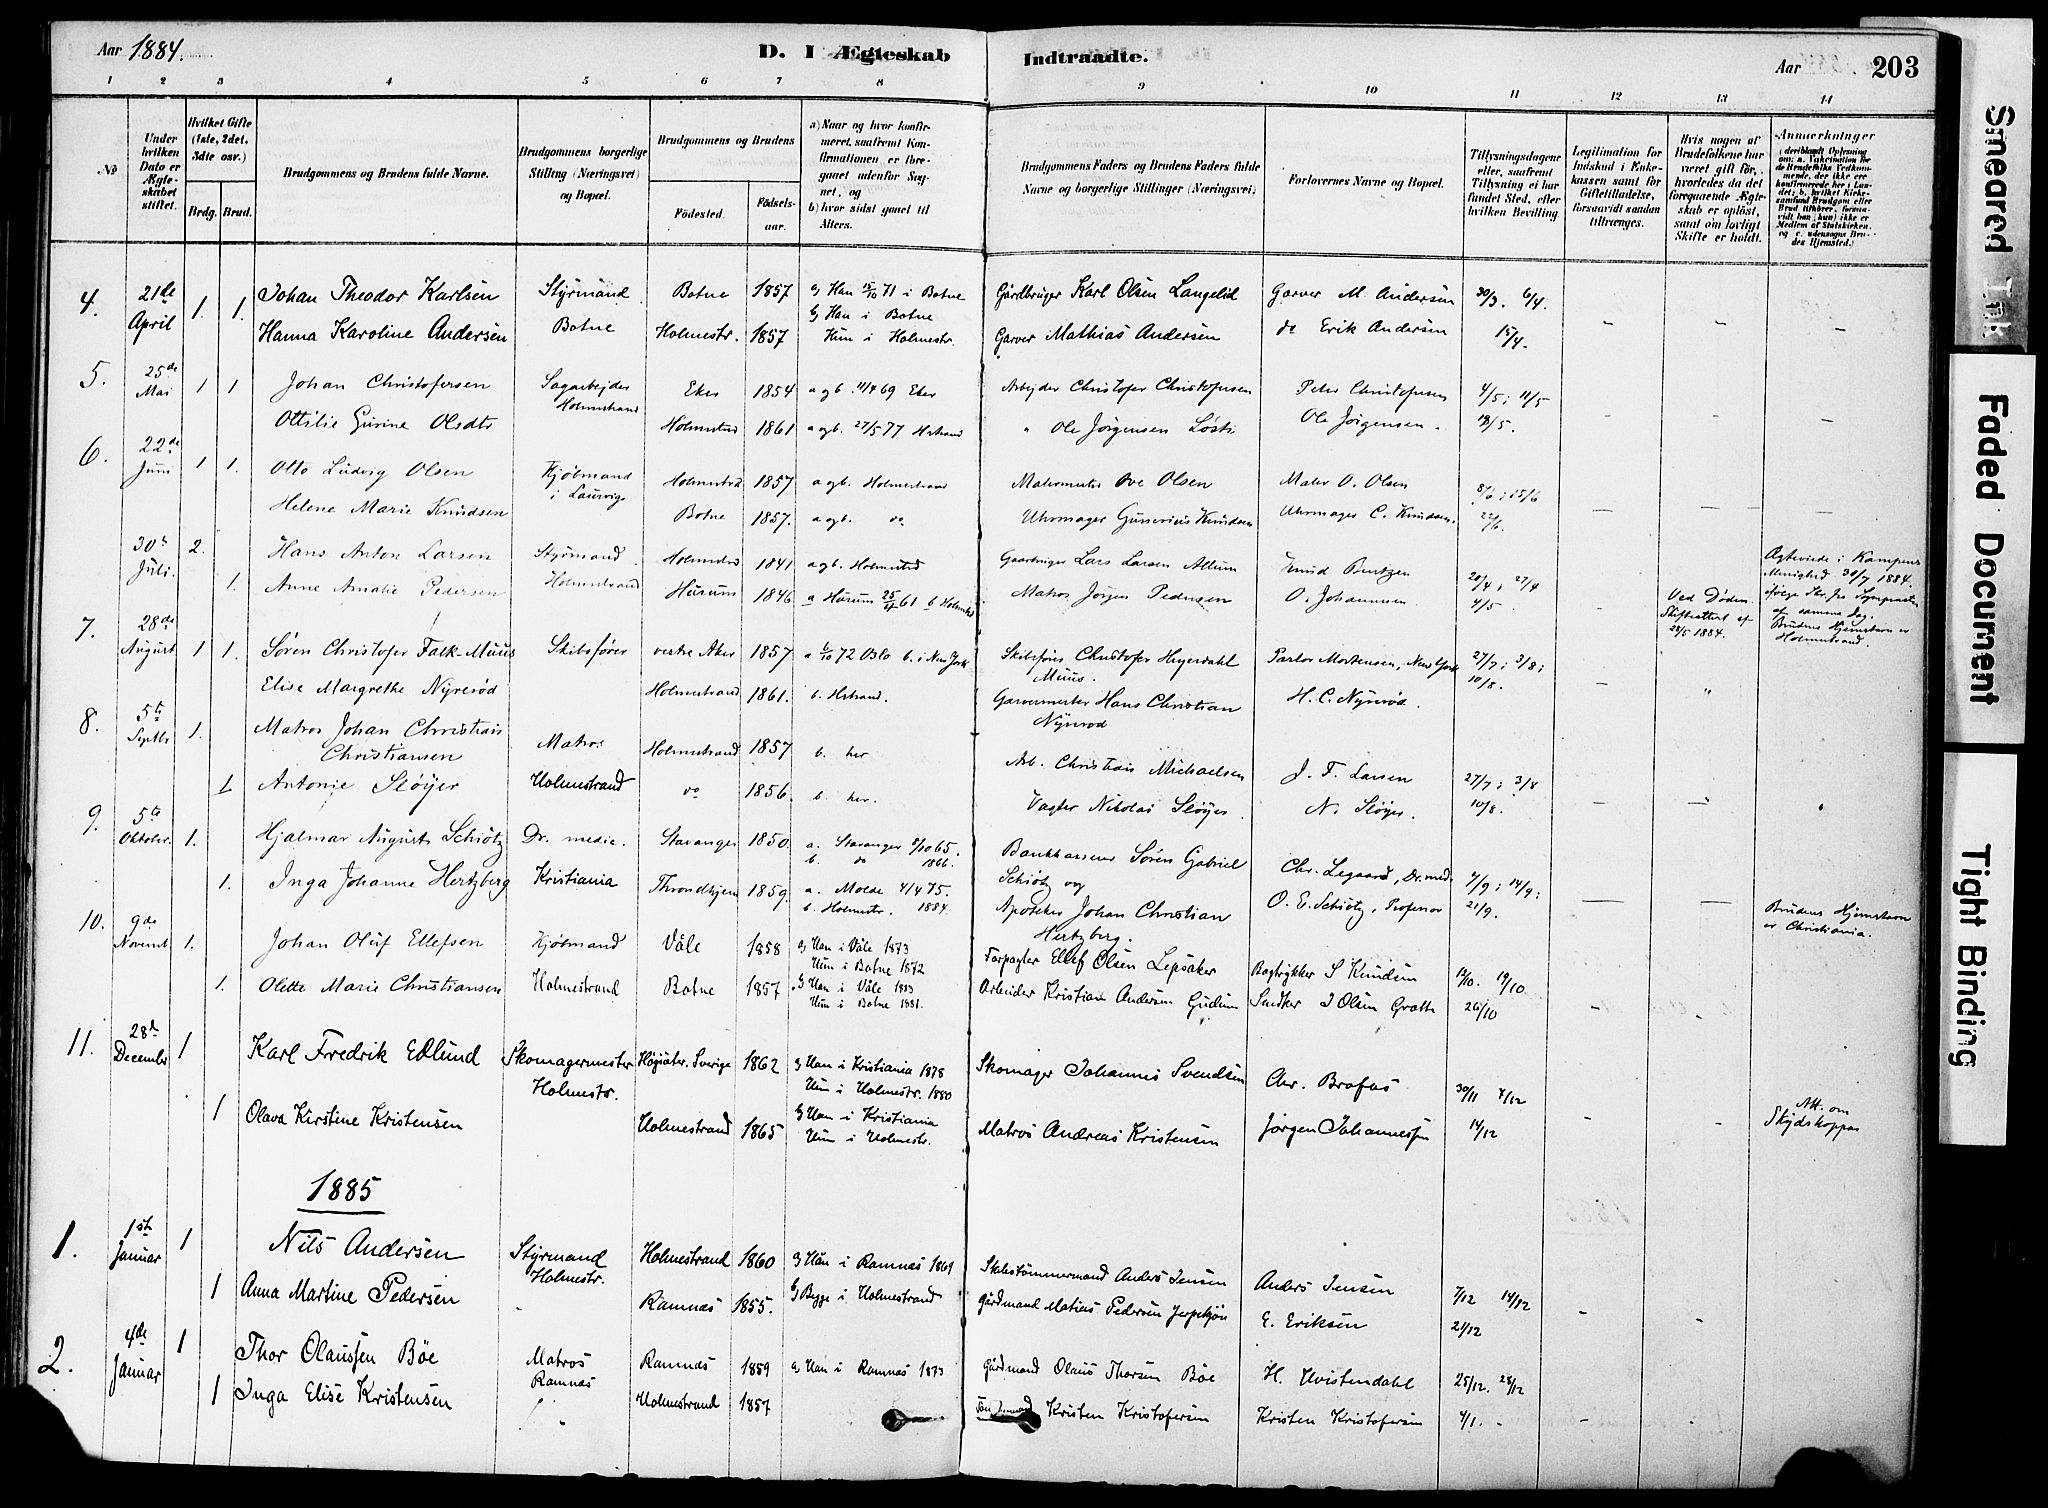 Aar 1884.
D. I Ægteskab Indtraadte.
Aar 203
1 2 3 4 5 6 7 8 9 10 11 12 13 14
No
Under hvilken Dato er Ægteskabet stiftet.
Hvilket Gifte (1ste, 2det, 3die osv.)
Brdg. Brud.
Brudgommens og Brudens fulde Navne.
Brudgommens borgerlige Stilling (Næringsvei) og Bopæl.
Brudgommens og Brudens
Fødested.
Fødselsaar.
a) Naar og hvor konfirmeret, saafremt Konfirmationen er foregaaet udenfor Sognet, og
b) hvor sidst gaaet til Alters.
Brudgommens Faders og Brudens Faders fulde Navne og borgerlige Stillinger (Næringsvei).
Forlovernes Navne og Bopæl.
Tillysningsdagene eller, saafremt Tillysning ei har fundet Sted, efter hvilken Bevilling.
Legitimation for Indskud i Enkekassen samt for Giftetilladelse, forsaavidt saadan tiltrænges.
Hvis nogen af Brudefolkene har været gift før, hvorledes da det foregaaende Ægteskab er opløst, samt om lovligt Skifte er holdt.
Anmærkninger
4. 21de April 1. 1. Johan Theodor Karlsen Styrmand Botne 1857 a, Han 15/10 71 i Botne Gårdbruger Karl Olsen Langelid Garver M. Andersen 30/3. 6/4.
b, Han i Botne
Hanna Karoline Andersen Botne Holmestr. 1857 Hun i Holmestr. Garver Mathias Andersen do Erik Andersen 15/4.
5. 25de Mai 1 1 Johan Christofersen Sagarbejder Eker 1854 a og b. 11/4 69 Eker Arbejder Christofer Christofersen Peter Christofersen 4/5; 11/5
Holmestrand
Ottilie Gurine Olsdtr Holmestrd 1861 a og b. 27/5 77 Hstrand " Ole Jörgensen Ole Jörgensen. 18/5.
6. 22de Juni 1 1. Otto Ludvig Olsen Kjöbmand i Laurvig Holmestrd 1857 a og b. Holmestrand Ove Olsen Maler O. Olsen 8/6; 15/6
Helene Marie Knudsen Botne 1857. a og b. do Uhrmager Gunerius Knudsen Uhrmager C. Knudsen. 22/6.
30te Juli. 2. Hans Anton Larsen Styrmand Holmestrd 1841 a og b. Holmestrd Gaardbruger Lars Larsen Allum Knud Bentzen 20/4; 27/4
1. Anne Amalie Pedersen Holmestrand Hurum 1846 a Hurum 61 b Holmestrd Matros Jörgen Pedersen O. Johannesen 4/5. Ved Döden. Skifteattest af 28/5 1884.
Ægteviede i Kampens Menighed 30/7 1884. ifölge af samme dag. Brudens Hjemstavn er Holmestrand.
7. 28de August 1 1. Sören Christofer Falk-Muus Skibsförer vestre Aker 1857 a 6/10 72 Oslo b. i New York Skibsförer Christofer Heyerdahl Muus. Pastor Mortensen, New York 27/7; 3/8;
Elise Margrethe Nyreröd Holmestrand 1861. b. Hstrand. Garvermester Hans Christian Nyreröd H. C. Nyreröd. 10/8.
8. 5te Septbr 1. Matros Johan Christian Christiansen Matros Holmestrand 1857 b. her Arb. Christian Michaelsen J. F. Larsen 27/7; 3/8
1 Antonie Slöyer Holmestrand do 1856. b. her. Vagter Nikolai Slöyer N. Slöyer. 10/8.
9. 5te Oktober. 1. Hjalmar August Schiötz Dr. medic. Stavanger 1850. a. Stavanger 8/10 65. b. do 1866. Bankkasserer Sören Gabriel Schiötz og Chr. Legaard, Dr. med. 7/9; 14/9;
1. Inga Johanne Hertzberg Kristiania Throndhjem 1859. a. Molde 4/4 75. b. Holmestr. 1884. Apotheker Johan Christian Hertzberg. O. E. Schiötz, Professor 21/9.
Brudens Hjemstavn er Christiania.
10. 9de Novemb. 1. Johan Oluf Ellefsen Kjöbmand Våle 1858 a, Han i Våle 1873 Forpagter Ellef Olsen Lepsaker Bogtrykker S Knudsen 12/10. 19/10
Hun i Botne 1872
1. Olette Marie Christiansen Holmestrand Botne 1857 b, Han i Våle 1883 Arbeider Kristian Andersen Gudum Snedker J Olsen Grotte 26/10
Hun i Botne 1881.
11. 28de December 1 Karl Fredrik Edlund Skomagermester Högsäter. Sverige 1862 a, Han i Kristiania 1878 Skomager Johannes Svendsen Chr. Brofas 30/11 7/12
Holmestr. Hun i Holmestr. 1880
1 Olava Kirstine Kristensen Holmestrand 1865 b, Han i Kristiania Matros Andreas Kristensen Jörgen Johannessen 14/12 Att. om Skydskopper
Hun i Holmestr.
1885
1. 1ste Januar 1 Nils Andersen Styrmand Holmestrand 1860 a, Han i Ramnäs 1869 Skibstömmermand Anders Jensen Anders Jensen 7/12 14/12
Holmestr.
1 Anna Martine Pedersen Ramnäs 1855. b, Begge i Holmestrand Gårdmand Matias Pedersen E. Eriksen 21/12
2. 4de Januar 1 Thor Olaussen Böe Matros Ramnäs 1859 a, Han i Ramnäs 1873 Gårdmand Olaus Thorsen Böe H. Hvistendahl 25/12. 28/12
Ramnäs
1 Inga Elise Kristensen Holmestrand 1857 Kristen Kristofersen Kristen Kristofersen 4/1.
Smeared Ink
Faded Document
Tight Binding